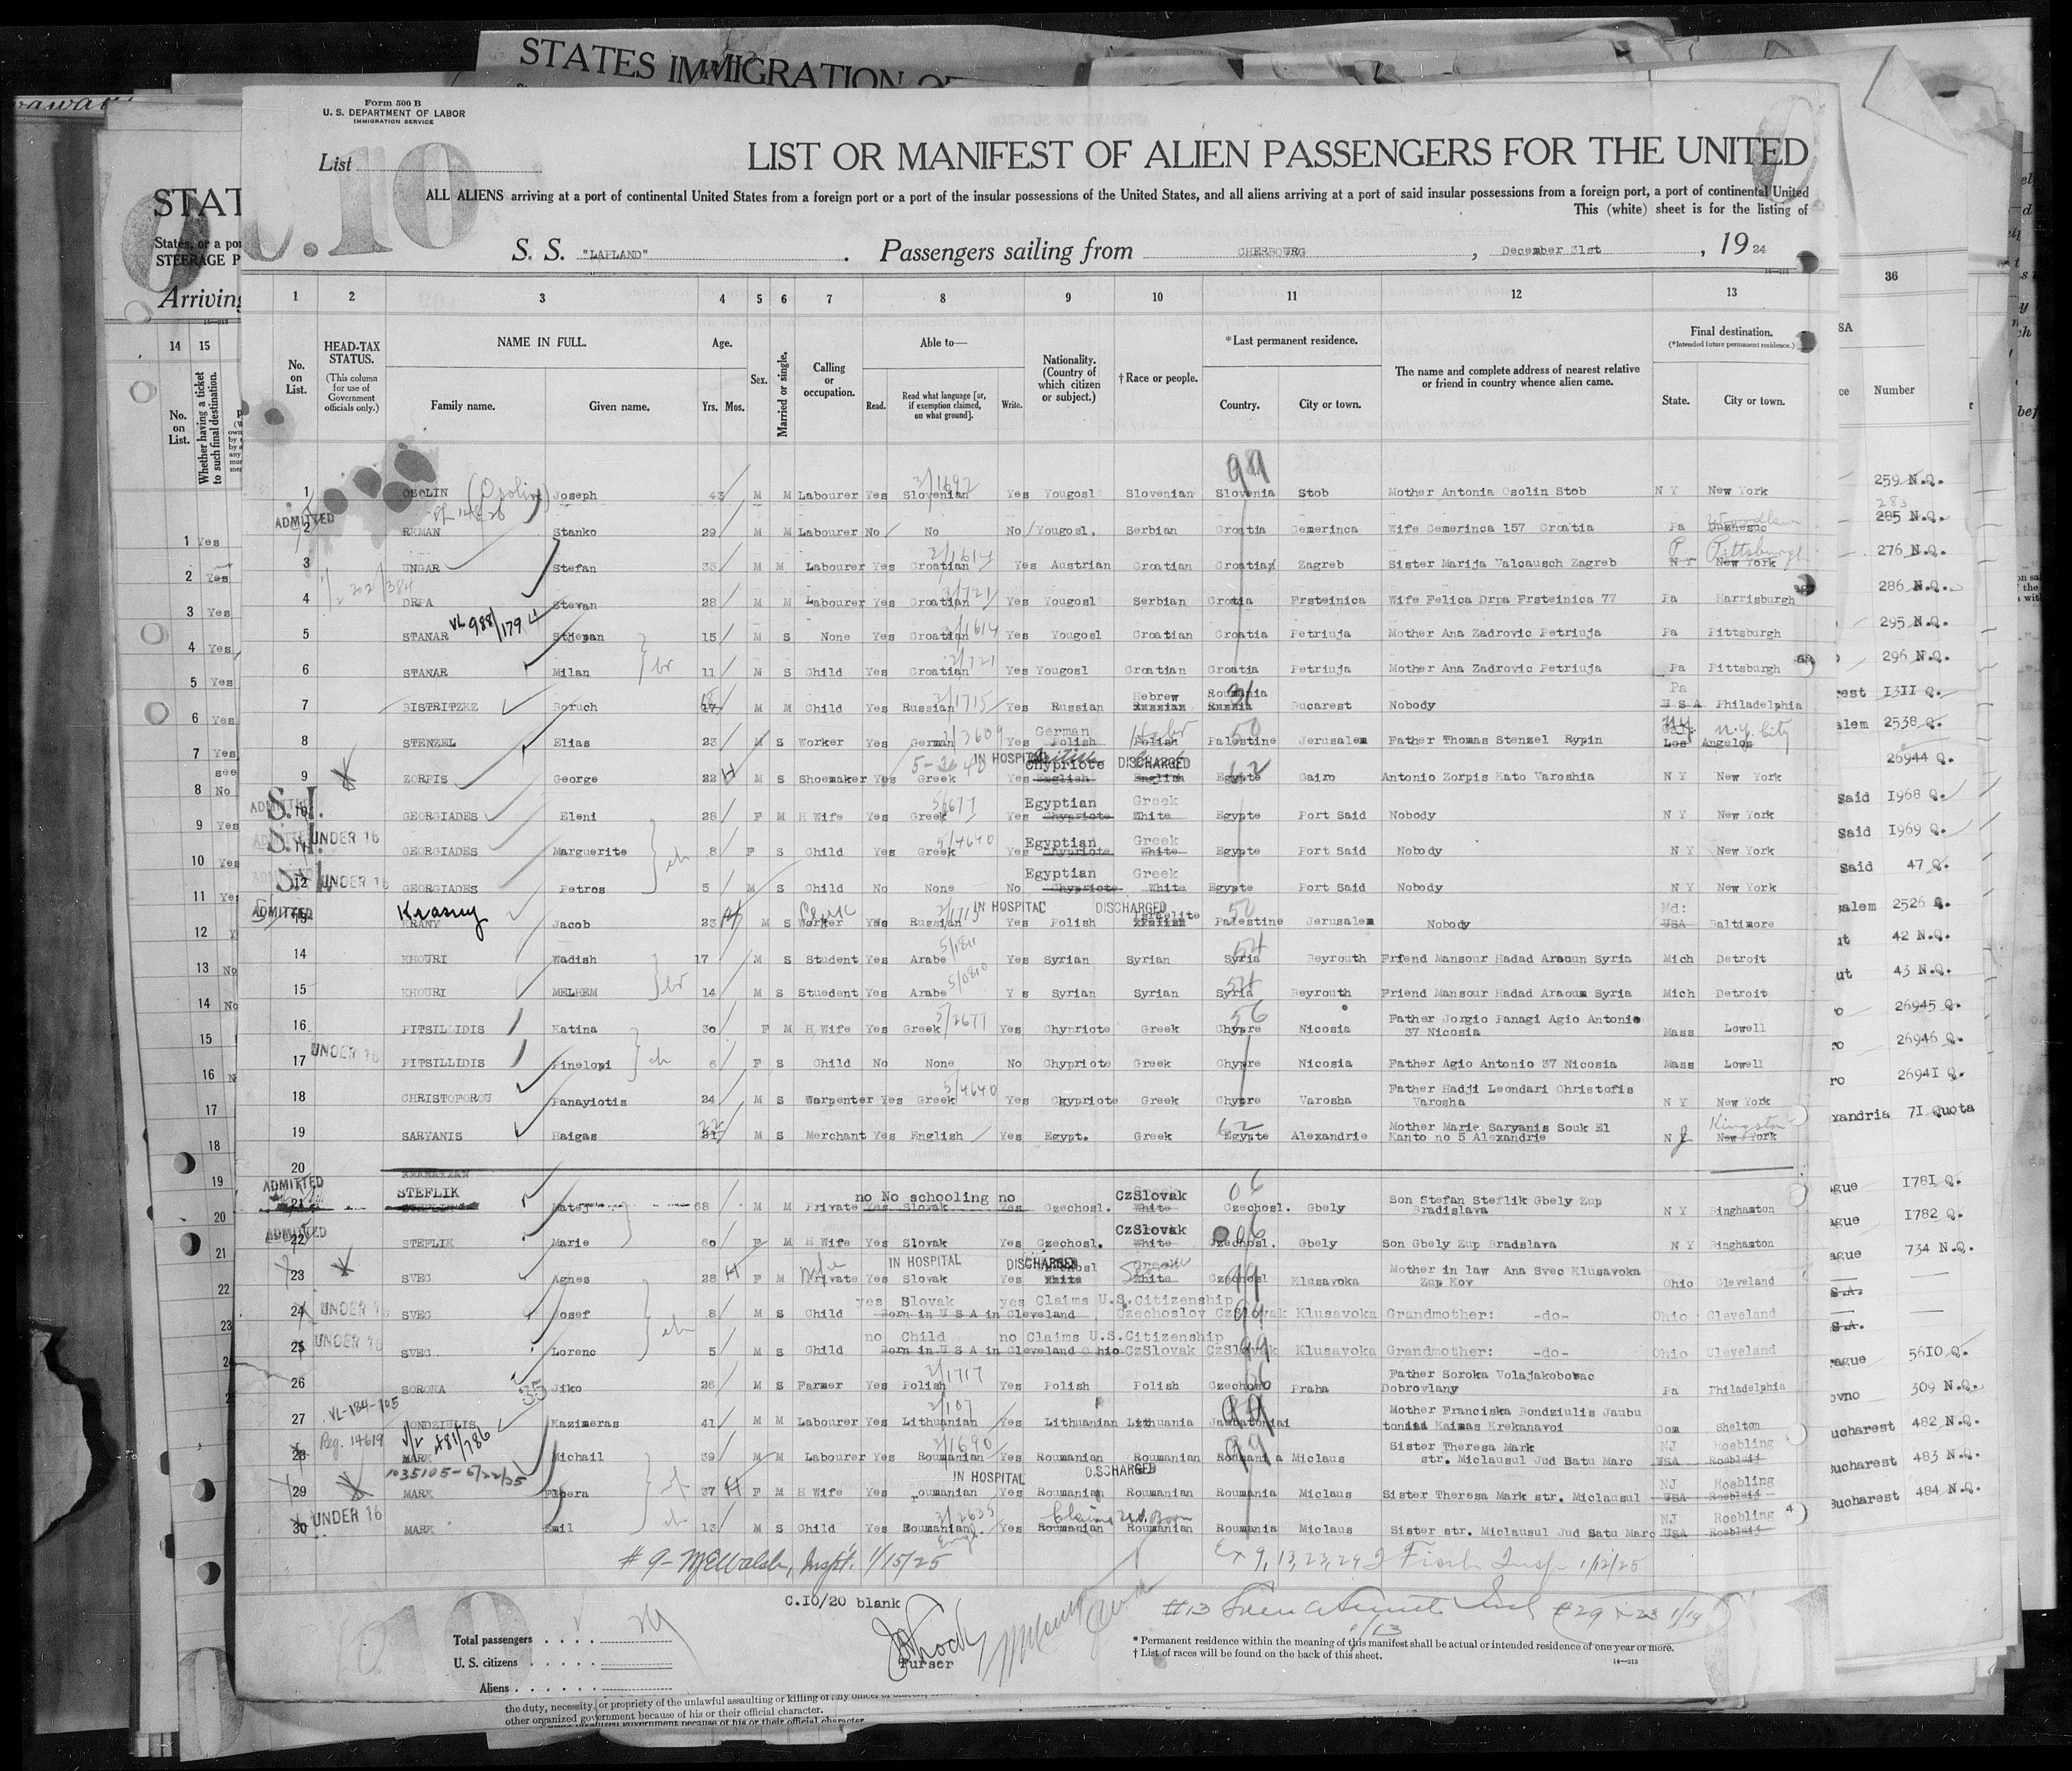 STATES IMMIGRATION
Form 500 B
U. S. DEPARTMENT OF LABOR
IMMIGRATION SERVICE
List
LIST OR MANIFEST OF ALIEN PASSENGERS FOR THE UNITED
ALL ALIENS arriving at a port of continental United States from a foreign port or a port of the insular possessions of the United States, and all aliens arriving at a port of said insular possessions from a foreign port, a port of continental United
This (white) sheet is for the listing of
S. S. "LAPLAND". Passengers sailing from CHERBOURG, December 31st, 1924
1 2 3 4 5 6 7 8 9 10 11 12 13
No. on List.
HEAD-TAX STATUS.
(This column for use of Government officials only.)
NAME IN FULL.
Family name. Given name.
Age.
Yrs. Mos.
Sex.
Married or single.
Calling or occupation.
Able to—
Read. Read what language [or, if exemption claimed, on what ground]. Write.
Nationality. (Country of which citizen or subject.)
† Race or people.
*Last permanent residence.
Country. City or town.
The name and complete address of nearest relative or friend in country whence alien came.
Final destination.
(*Intended future permanent residence.)
State. City or town.
1 OSOLIN Joseph 43 M M Labourer Yes Slovenian Yes Yougosl Slovenian Slovenia Stob Mother Antonia Osolin Stob N Y New York
ADMITTED
2 Stanko 29 M M Labourer No No No Yougosl. Serbian Croatia Cemerinca Wife Cemerinca 157 Croatia Pa
3 UNGAR Stefan 35 M M Labourer Yes Croatian Yes Austrian Croatian Croatian Zagreb Sister Marija Valcausch Zagreb N Y New York Pittsburgh
4 DRPA Stevan 28 M M Labourer Yes Croatian Yes Yougosl Serbian Croatia Frsteinica Wife Felica Drpa Frsteinica 77 Pa Harrisburgh
5 STANAR Stjepan 15 M S None Yes Croatian Yes Yougosl Croatian Croatia Petriuja Mother Ana Zadrovic Petriuja Pa Pittsburgh
6 STANAR Milan 11 M S Child Yes Croatian Yes Yougosl Croatian Croatia Petriuja Mother Ana Zadrovic Petriuja Pa Pittsburgh
7 BISTRITZKZ Boruch 17 M M Child Yes Russian Yes Russian Hebrew Russian Roumania Russia Bucarest Nobody Pa U S A Philadelphia
8 STENZEL Elias 23 M S Worker Yes German Yes German Polish Polish Palestine Jerusalem Father Thomas Stenzel Rypin N.Y. City Los Angelos
IN HOSPITAL DISCHARGED
9 ZORPIS George 22 M S Shoemaker Yes Greek Yes Chypriote English English Egypte Cairo Antonio Zorpis Kato Varoshia N Y New York
ADMITTED S.I.
10 GEORGIADES Eleni 28 F M H Wife Yes Greek Yes Egyptian Chypriote Greek White Egypte Port Said Nobody N Y New York
UNDER 16
11 GEORGIADES Marguerite 8 F S Child Yes Greek Yes Egyptian Chypriote Greek White Egypte Port Said Nobody N Y New York
UNDER 16
12 GEORGIADES Petros 5 M S Child No None No Egyptian Chypriote Greek White Egypte Port Said Nobody N Y New York
ADMITTED Krasny IN HOSPITAL DISCHARGED
13 KRANY Jacob 23 M S Clerk Worker Yes Russian Yes Polish Israelite Palestine Jerusalem Nobody Md: USA Baltimore
14 KHOURI Wadish 17 M S Student Yes Arabe Yes Syrian Syrian Syria Beyrouth Friend Mansour Hadad Araoun Syria Mich Detroit
15 KHOURI MELHEM 14 M S Stuedent Yes Arabe Y s Syrian Syrian Syria Beyrouth Friend Mansour Hadad Araoun Syria Mich Detroit
16 PITSILLIDIS Katina 30 F M H Wife Yes Greek Yes Chypriote Greek Chypre Nicosia Father Jorgio Panagi Agio Antonio 37 Nicosia Mass Lowell
UNDER 16
17 PITSILLIDIS Pinelopi 6 F S Child No None No Chypriote Greek Chypre Nicosia Father Agio Antonio 37 Nicosia Mass Lowell
18 CHRISTOFOROU Panayiotis 24 M S Warpenter Yes Greek Yes Chypriote Greek Chypre Varosha Father Hadji Leondari Christofis Varosha N Y New York
19 SARYANIS Haigas 22 M S Merchant Yes English Yes Egypt. Greek Egypte Alexandrie Mother Marie Saryanis Souk El Kanto no 5 Alexandrie N J Kingston New York
20
ADMITTED
21 STEFLIK Matej 68 M M Private no No schooling no Yes Slovak Yes Czechosl. CzSlovak White Czechosl. Gbely Son Stefan Steflik Gbely Zup Bradislava N Y Binghamton
ADMITTED
22 STEFLIK Marie 60 F M H Wife Yes Slovak Yes Czechosl. CzSlovak White Czechosl. Gbely Son Gbely Zup Bradslava N Y Binghamton
IN HOSPITAL DISCHARGED
23 SVEC Agnes 28 F M Private Yes Slovak Yes Czechosl White White Czechosl Klusavoka Mother in law Ana Svec Klusavoka Zup Kov Ohio Cleveland
UNDER 16
24 SVEC Josef 8 M S Child yes Slovak yes Claims U.S.Citizenship Born in U S A in Cleveland Czechoslov CzSlovak Klusavoka Grandmother: -do- Ohio Cleveland
UNDER 16
25 SVEC Lorenc 5 M S Child no Child no Claims U.S.Citizenship Born in U S A in Cleveland Ohio CzSlovak CzSlovak Klusavoka Grandmother: -do- Ohio Cleveland
26 SOROKA Jiko 26 M S Farmer Yes Polish Yes Polish Polish Czechoslo Praha Father Soroka Volajakobovac Dobrovlany Pa Philadelphia
VL-184-105
27 BONDZIULIS Kazimeras 41 M M Labourer Yes Lithuanian Yes Lithuanian Lithuania Mother Franciska Bondziulis Jaubu Kaimas Krekanavoi Con Shelton
Reg. 14619
28 MARK Michail 39 M M Labourer Yes Roumanian Yes Roumanian Roumanian Roumania Miclaus Sister Theresa Mark str. Miclausul Jud Satu Marc NJ USA Roebling
1035105-6/22/35 IN HOSPITAL DISCHARGED
29 MARK Floera 37 F M H Wife Yes roumanian Yes Roumanian Roumanian Roumania Miclaus Sister Theresa Mark str. Miclausul NJ USA Roebling
UNDER 16
30 MARK Emil 13 M S Child Yes Roumanian Engl. Yes Claims U.S. Born Roumanian Roumanian Roumania Miclaus Sister str. Miclausul Jud Satu Marc NJ USA Roebling
# 9- Inspt. 1/15/25
Ex 9, 13, 23, 29 Insp 1/12/25
C.10/20 blank
Purser
Total passengers
U. S. citizens
Aliens
* Permanent residence within the meaning of this manifest shall be actual or intended residence of one year or more.
† List of races will be found on the back of this sheet.
14—213
the duty, necessity, or propriety of the unlawful assaulting or killing of any officer
other organized government because of his or their official character.
STAT
States, or a por
STEERAGE P
Arriving
14 15
No. on List.
Whether having a ticket to such final destination.
36
Number
259 N.Q.
285 N.Q.
276 N.Q.
286 N.Q.
295 N.Q.
296 N.Q.
1311 Q.
2538 Q.
26944 Q.
Said 1968 Q.
Said 1969 Q.
Said 47 Q.
2526 Q.
42 N.Q.
43 N.Q.
26945 Q.
26946 Q.
26941 Q.
xandria 71 Quota
ague 1781 Q.
ague 1782 Q.
ague 734 N.Q.
S.A.
S.A.
rague 5610 Q.
ovno 309 N.Q.
ucharest 482 N.Q.
Bucharest 483 N.Q.
Bucharest 484 N.Q.